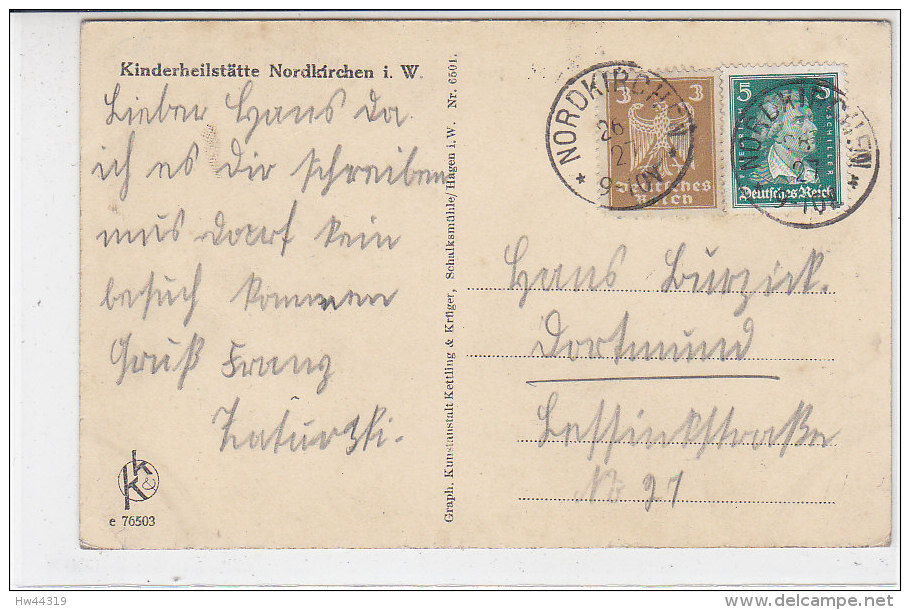 Kinderheilstätte Nordkirchen i. W.
Lieber Hans da
ich es dir schreiben
mus darf kein
besuch kommen
Gruß Franz
K&K
e 76503
Graph. Kunstanstalt Kettling & Krüger, Schalksmühle/Hagen i. W. Nr. 6501.
NORDKIRCHEN
26
27
9-10V
3 3
Deutsches
Reich
NORDKIRCHEN
27
9-10V
5 5
FRIEDRICH V. SCHILLER
Deutsches Reich
Hans Burziek.
Dortmund
straße
No 21
Hw44319
delcampe.net